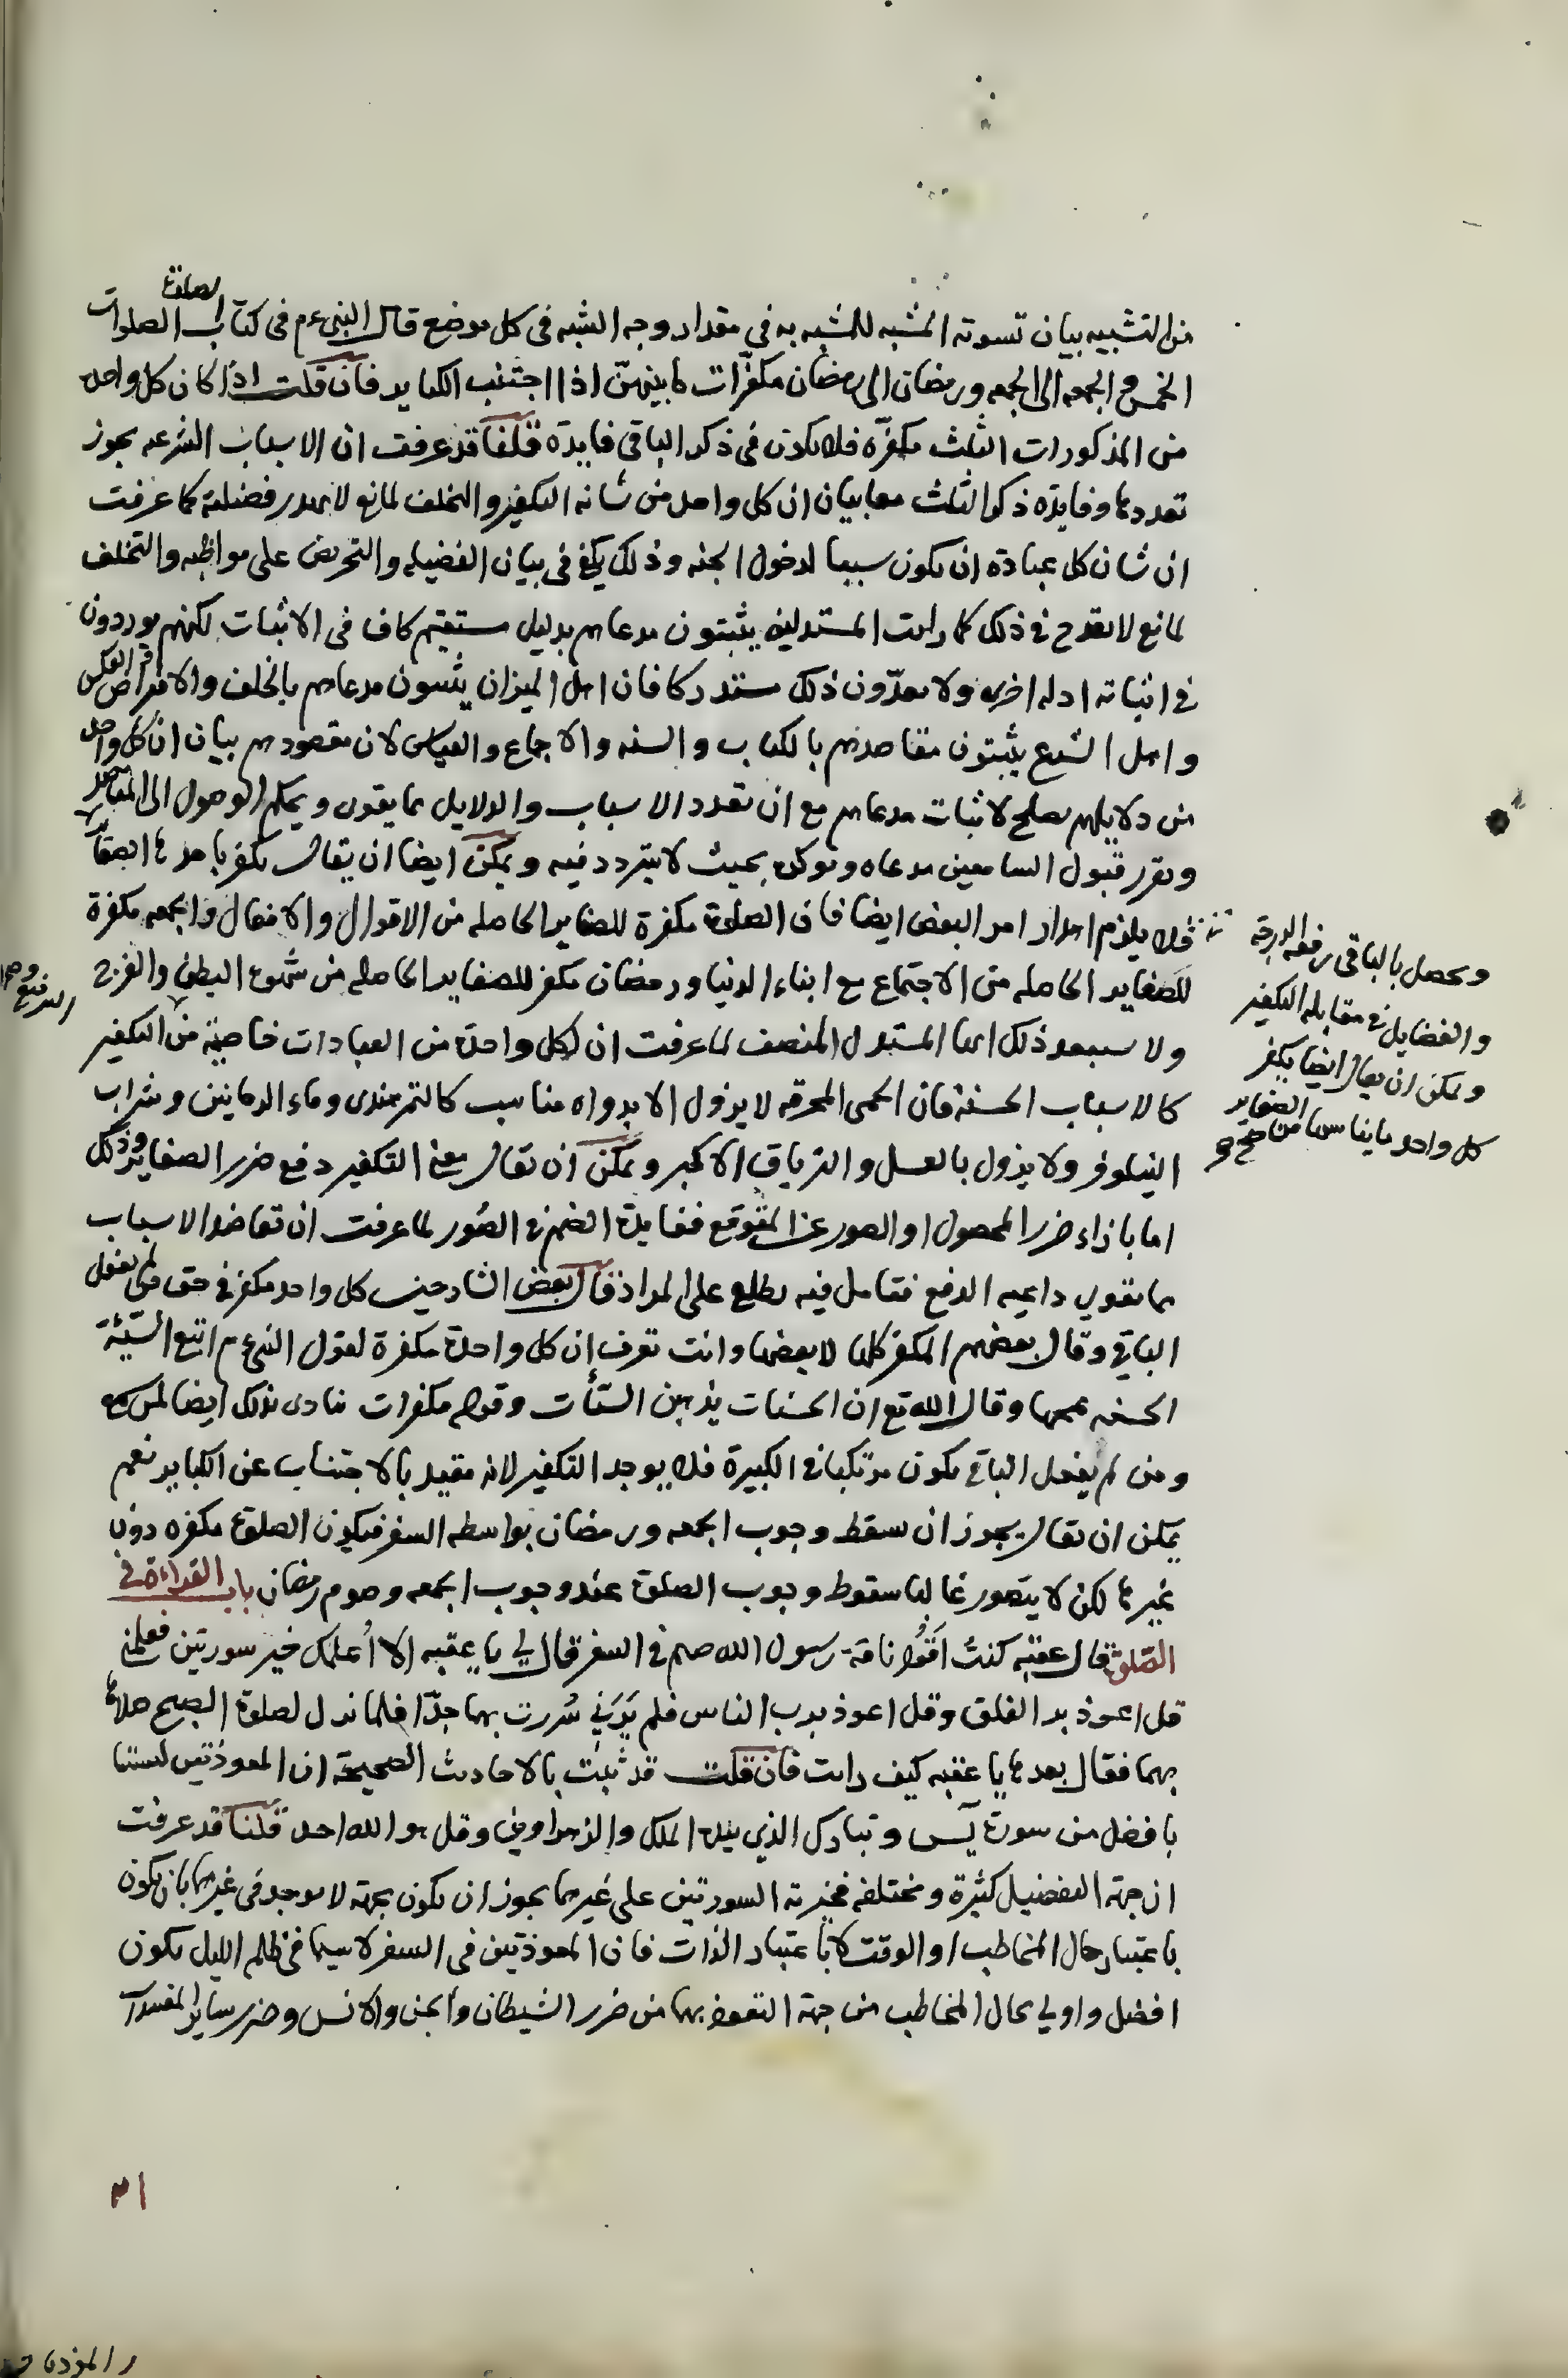 من التشبيه بيان تسوته المشبه للمشبه به في مقدار وجه الشبه فى كل موضع قال النبىءم فى كتاب الصلوات
الصلوة
الخمس والجمعه الى الجمعه ورمضان الى رمضان مكفرات لما بينهن اذا اجتنب الكباير فان قلت اذا كان كل واحد
من المذكورات الثلث مكفره فلا يكون فى ذكر الباقى فايده قلنا قد عرفت ان الاسباب الشرعيه يجوز
تعددها وفايده ذكر الثلث معا بيان ان كل واحد من شانه التكفير والتخلف لمانع لا يهدر فضيلته كما عرفت
ان شان كل عبادة ان يكون سببا لدخول الجنه وذلك يكفى فى بيان الفضيله والتحريض على مواظبه والتخلف
لمانع لا يقدح فى ذلك كما رايت المستدلين يثبتون مدعاهم بدليل مستقيم كاف فى الاثبات لكنهم يوردون
فى اثباته ادله اخرى ولا يعدّون ذلك مستدركا فان اهل الميزان يثبتون مدعاهم بالخلف والافتراض والعكس
واهل الشرع يثبتون مقاصدهم بالكتاب والسنه والاجماع والقياس لان مقصودهم بيان ان كل واحد
من دلايلهم يصلح لاثبات مدعاهم مع ان تعدد الاسباب والدلايل مما يقوى ويحكم الوصول الى المقاصد
ويقرر قبول السامعين مدعاه ويوكده بحيث لا يتردد فيه ويمكن ايضا ان يقال يكفر باحدها الصغاير
فلا يلزم اهدار امر البعض ايضا فان الصلوة مكفرة للصغاير الحاصله من الاقوال والافعال والجمعه مكفرة
للصغاير الحاصله من الاجتماع مع ابناء الدنيا ورمضان مكفر للصغاير الحاصله من شهوة البطن والفرج
ولا يستبعد ذلك ايها المستدل المنصف لما عرفت ان لكل واحدة من العبادات خاصية من التكفير
كالاسباب الحسنة فان الحمى المحرقه لا يزول الا بدواء مناسب كالتمر هندى وماء الرمانين وشراب
النيلوفر ولا يزول بالعسل والترياق الاكبر ويمكن ان يقال معنى التكفير دفع ضرر الصغاير وذلك
اما بازاء ضرر المحصول او الصور عن المتوقع ففايدة الضم فى الصور لما عرفت ان تعاضد الاسباب
مما يقوى داعيه الدفع فتامل فيه يطلع على المراد قال بعض الشارحين كل واحد مكفر فى حق من لم يفعل
الباقى وقال بعضهم المكفر كلها لا بعضها وانت تعرف ان كل واحدة مكفرة لقول النبىءم اتبع السيّئة
الحسنه تمحها وقال الله تع ان الحسنات يذهبن السيّأت وقوله مكفرات ينادى بذلك ايضا
ومن لم يفعل الباقى يكون مرتكبا فى الكبيرة فلا يوجد التكفير لانه مقيد بالاجتناب عن الكباير نعم
يمكن ان يقال يجوز ان يسقط وجوب الجمعه ورمضان بواسطه السفر فيكون الصلوة مكفره دون
غيرها لكن لا يتصور غالبا سقوط وجوب الصلوة عند وجوب الجمعه وصوم رمضان باب القراءة فى
الصّلوة قال عقبه كنت اقود ناقة رسول الله صلم فى السفر فقال لى يا عقبه الا اُعلمك خير سورتين فعلمنى
قل اعوذ برب الفلق وقل اعوذ برب الناس فلم يَرَنى سُررت بهما جدّا فلما نزل لصلوة الصبح صلاها
بهما فقال بعدها يا عقبه كيف رايت فان قلت قد ثبت بالاحاديث الصحيحة ان المعوذتين ليستا
بافضل من سورة يٓس وتبارك الذي بيده الملك والزهراوين وقل هو الله احد قلنا قد عرفت
ان جهة التفضيل كثيرة ومختلفه فخيرته السورتين على غيرهما يجوز ان يكون بجهة لا يوجد فى غيرهما بان يكون
باعتبار حال المخاطب او الوقت لا باعتبار الذات فان المعوذتين فى السفر لاسيما فى ظلم الليل يكون
افضل واولى بحال المخاطب من جهة التعوذ بهما من ضرر الشيطان والجن والانس وضرر ساير المفسدات
ويحصل بالباقى رفعه الدرجة
والفضايل فى مقابله التكفير
ويمكن ان يقال ايضا يكفر
كل واحد ما يناسبها من الصغاير
صح
٣١